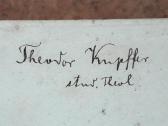 Theodor Knpffer
stud. Theol.